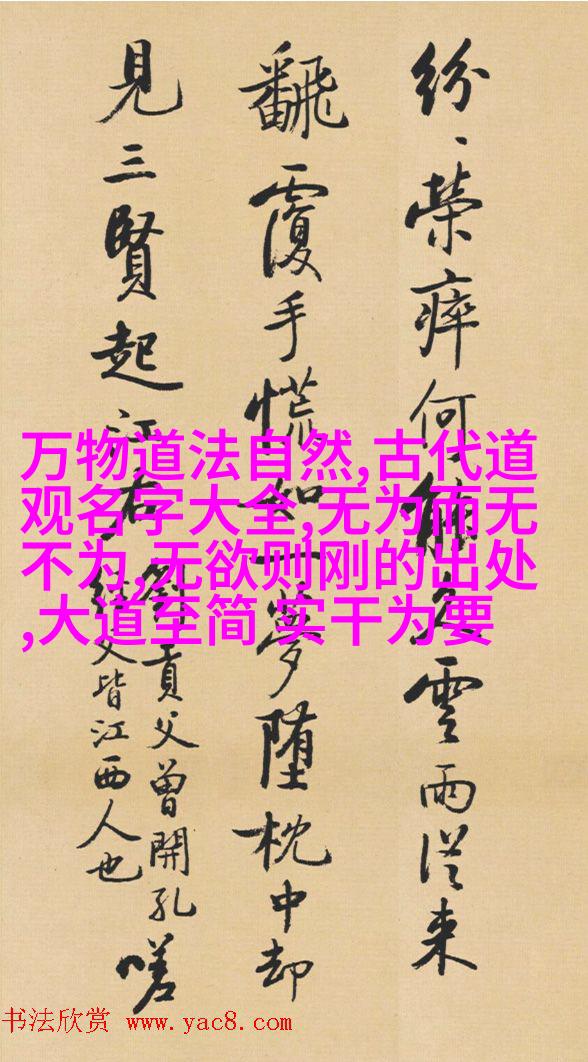 紛、榮瘁何能久雲雨從來
飜覆手慌如一夢墮枕中却
見三賢起江右
劉貢父曾開孔
經父皆江西人也
嗟
万物道法自然,古代道
观名字大全,无为而无
不为,无欲则刚的出处
,大道至简 实干为要
书法欣赏 www.yac8.com